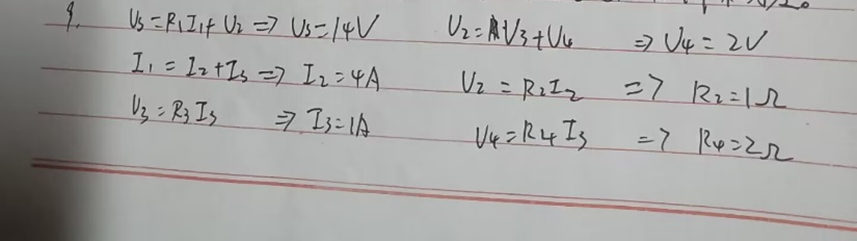 9. U₅=R₁I₁+U₂ => U₅=14V U₂=U₃+U₄ => U₄=2V
I₁=I₂+I₃ => I₂=4A U₂=R₂I₂ => R₂=1Ω
U₃=R₃I₃ => I₃=1A U₄=R₄I₃ => R₄=2Ω